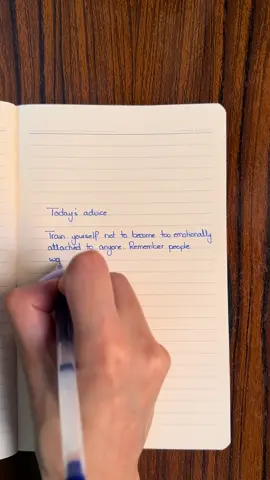 Today's advice
Train yourself not to become too emotionally
attached to anyone. Remember people